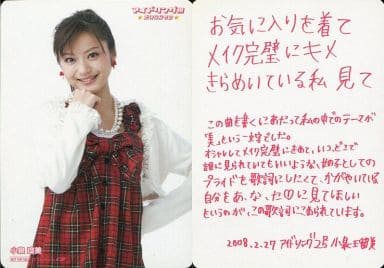 アイドリング!!!
小泉 瑠美
お気に入りを着て
メイク完璧にキメ
きらめいている私 見て
この曲を書くにあたって私の中でのテーマが
「美」という一文字でした。
オシャレしてメイク完璧にきめて、いつ、どこで
誰に見られていてもいいような、女の子としての
プライドを歌詞にしたくて、かがやいている
自分をあ、な、たに見てほしい
というのが、この歌詞にこめられています。
2008.2.27 アイドリング2号 小泉瑠美